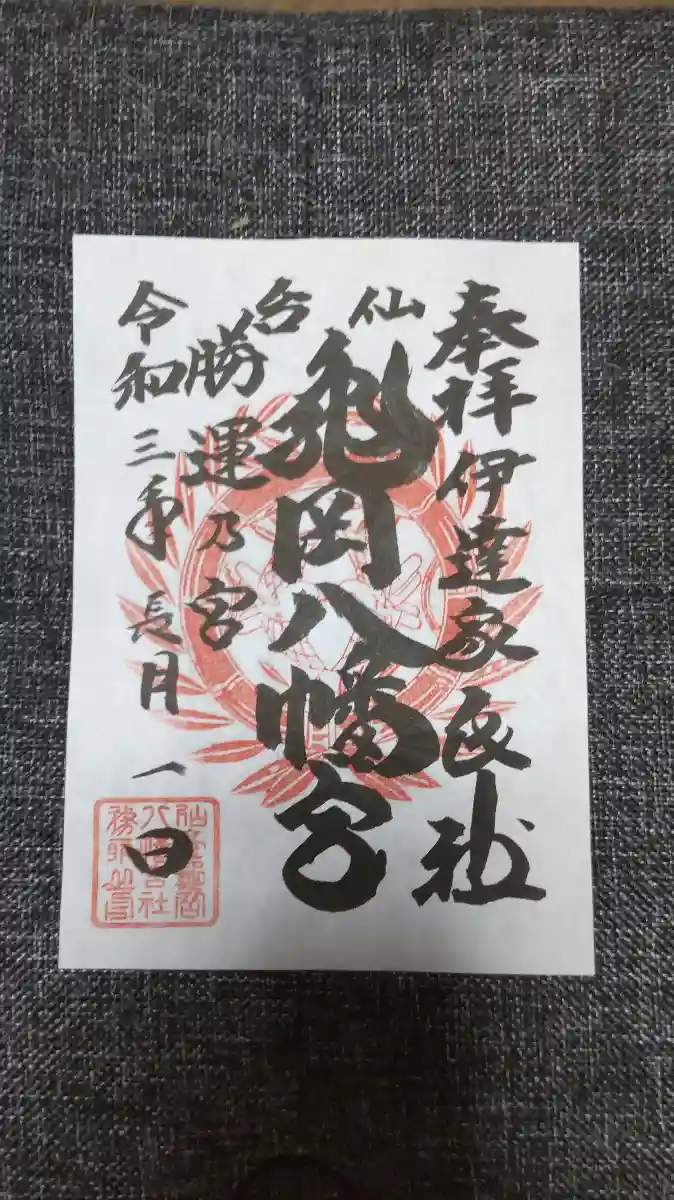 奉拝 伊達家氏社
仙台
亀岡八幡宮
勝運乃宮
令和三年長月一日
仙台亀岡
八幡宮社
務所之章